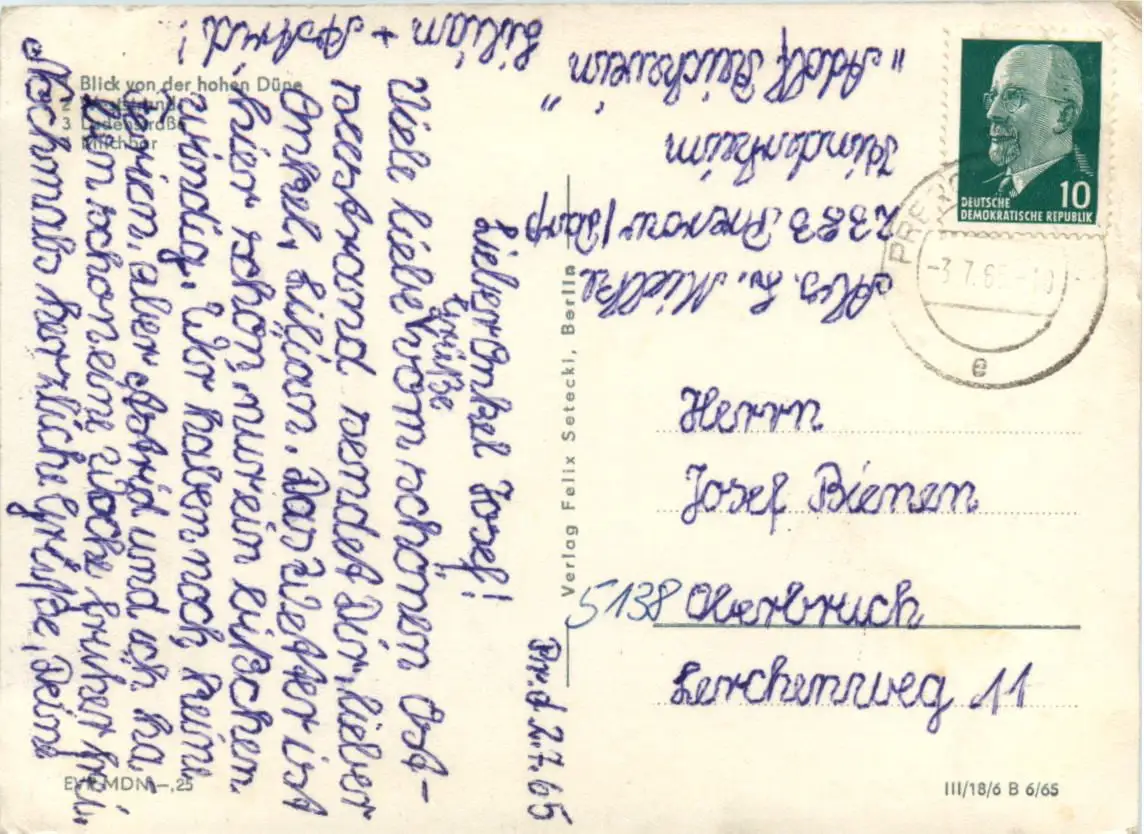 Blick von der hohen Düne
2
3 Ladenstraße
4 Milchbar
Pr. d. 2.7.65
Lieber Onkel Josef!
Viele liebe Grüße vom schönen Ost-
seestrand sendet Dir, lieber
Onkel, Lilian. Das Wetter ist
hier schön, nur ein bißchen
windig. Wir haben noch keine
Ferien, aber Astrid und ich ha-
ben schon eine Woche früher frei.
Nochmals herzliche Grüße, Deine
Lilian + Astrid!
Abs. L. Mielke
2383 Prerow/Darß
Kinderheim
"Adolf Reichwein"
DEUTSCHE
DEMOKRATISCHE REPUBLIK
10
PREROW
-3.7.65-10
e
Herrn
Josef Bienen
5138 Oberbruch
Lerchenweg 11
Verlag Felix Setecki, Berlin
EVP MDN -,25
III/18/6 B 6/65